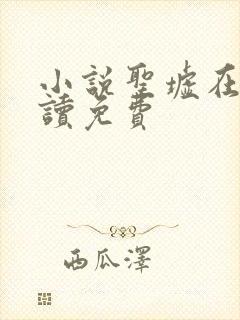 小說聖墟在
讀免費
西瓜澤